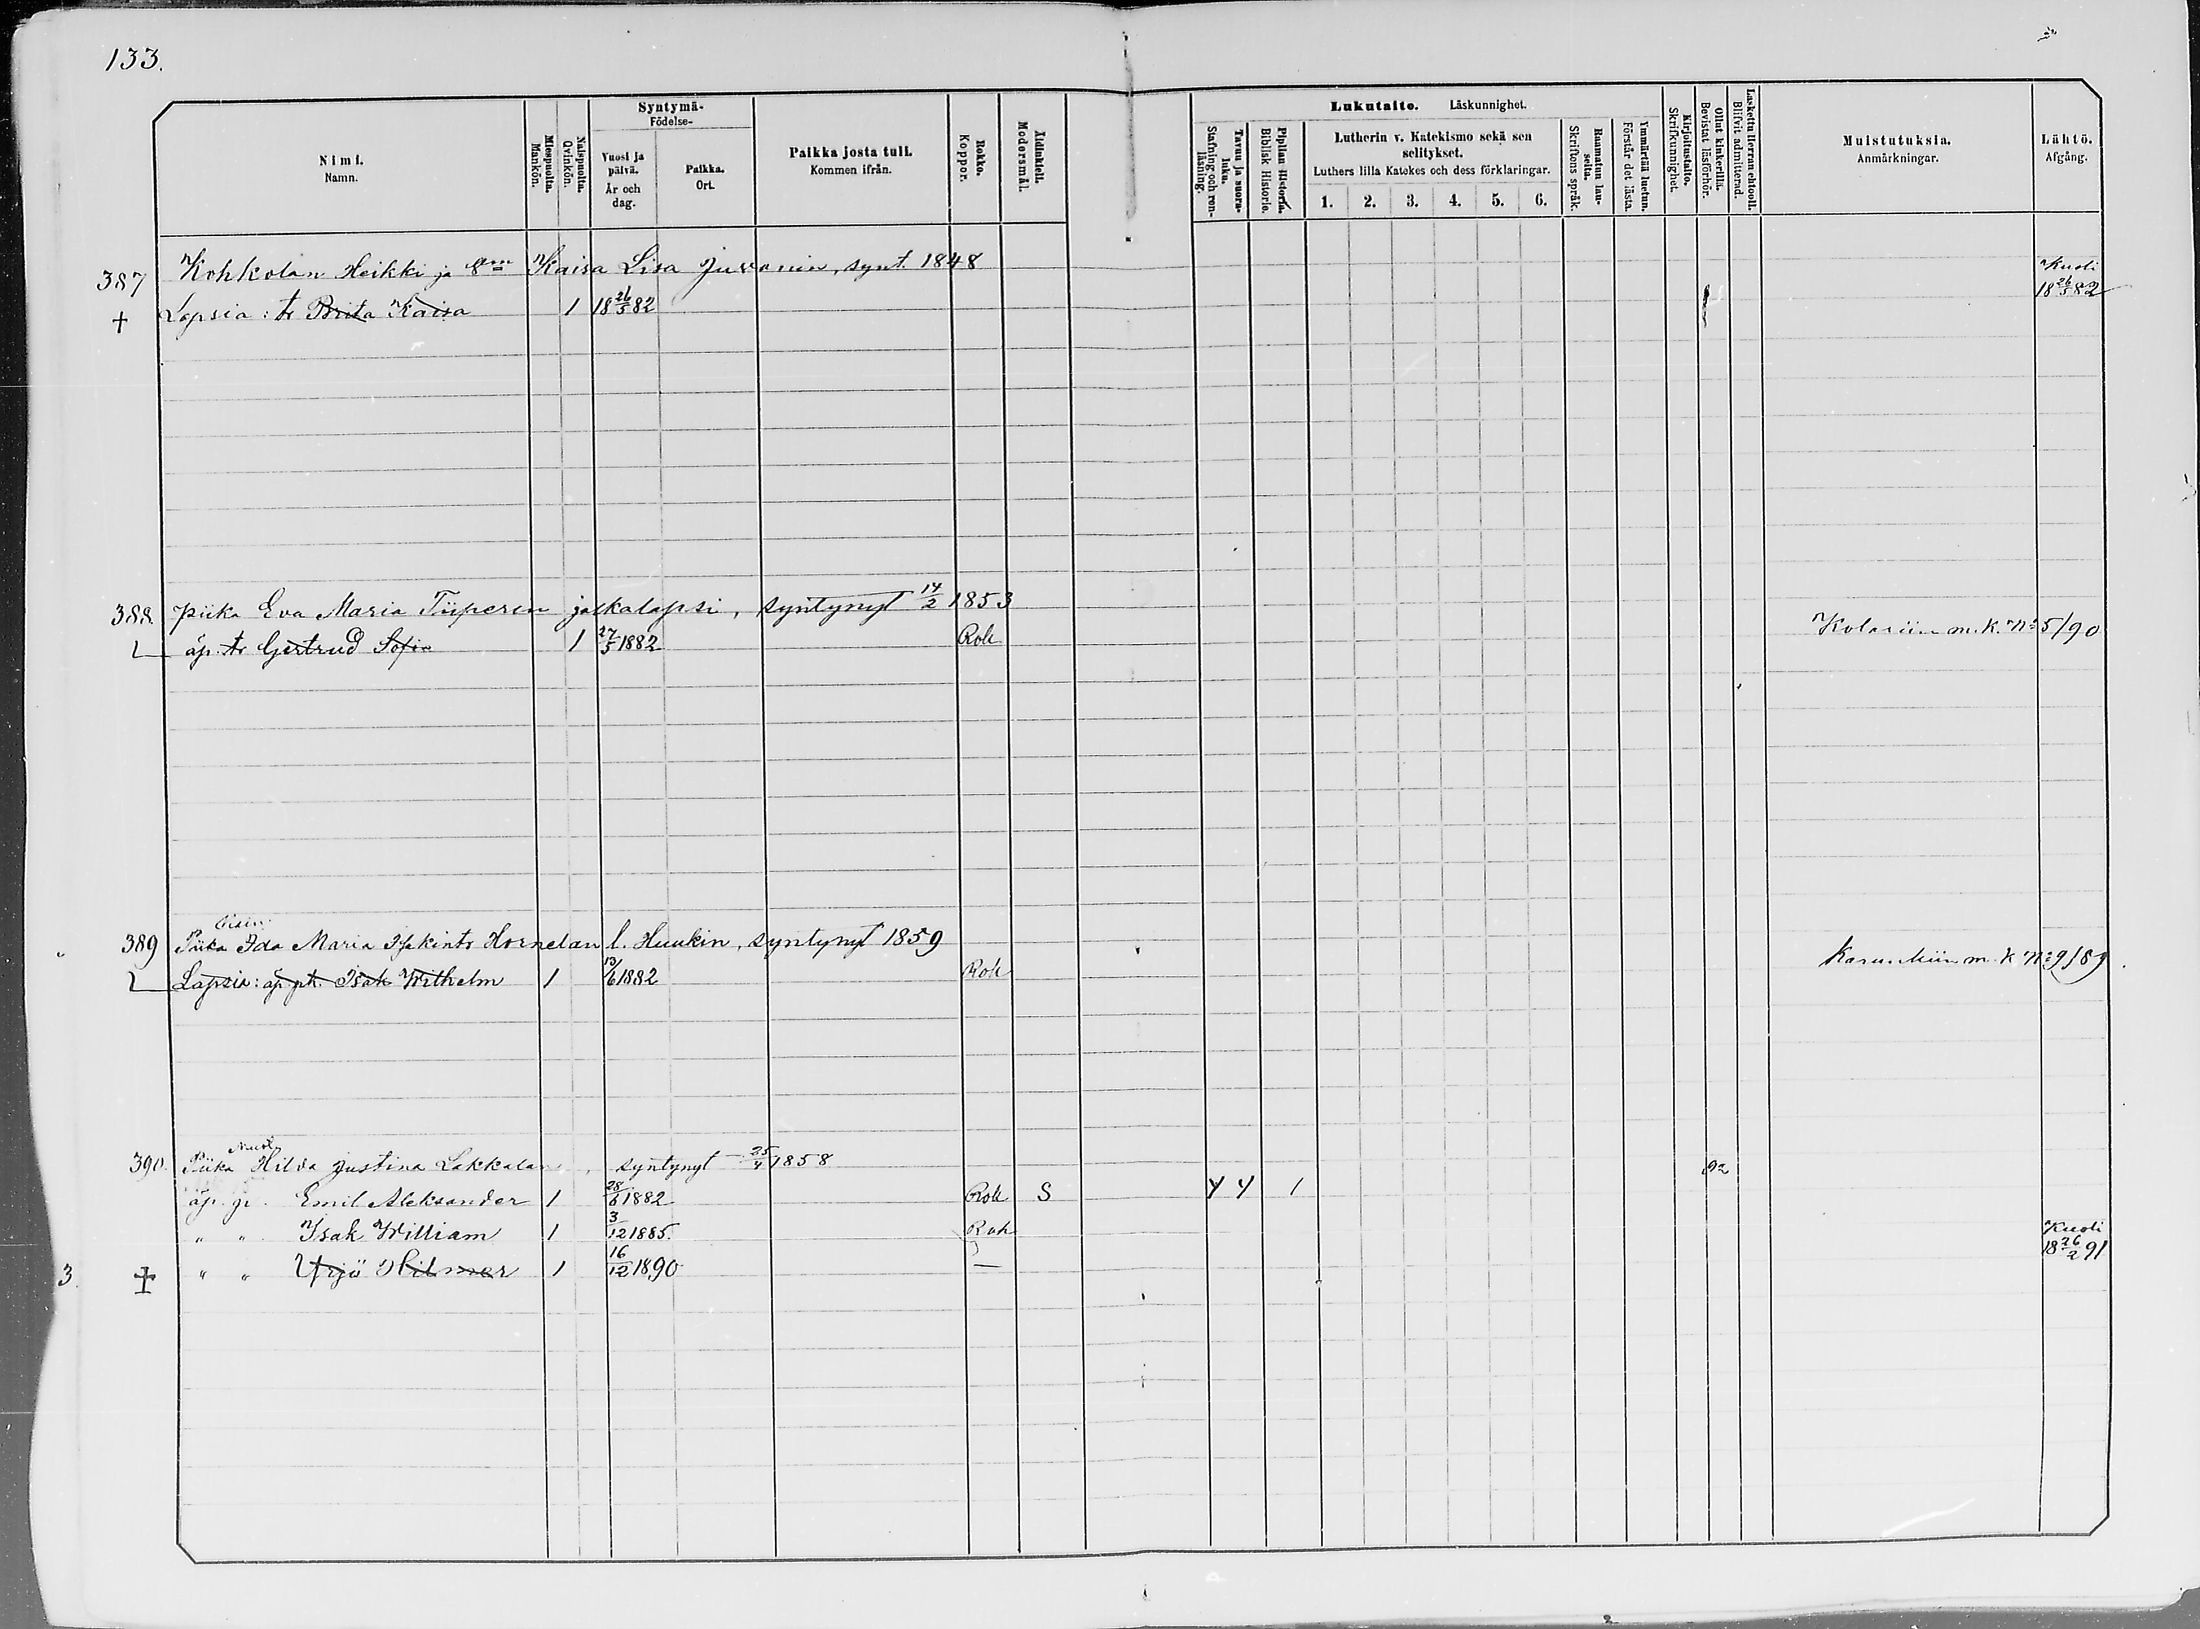 133.
Nimi.
Namn.
Miespuolta.
Mankön.
Naispuolta.
Qvinkön.
Syntymä-
Födelse-
Vuosi ja päivä.
År och dag.
Paikka.
Ort.
Paikka josta tuli.
Kommen ifrån.
Rokko.
Koppor.
Äidinkieli.
Modersmål.
Lukutaito. Läskunnighet.
Tavuu ja suora-luku.
Stafning och ren-läsning.
Piplian Historia.
Biblisk Historie.
Lutherin v. Katekismo sekä sen
selitykset.
Luthers lilla Katekes och dess förklaringar.
1. 2. 3. 4. 5. 6.
Raamatun lau-seita.
Skriftens språk.
Ymmärtää luetun.
Förstår det lästa.
Kirjoitustaito.
Skrifkunnighet.
Ollut kinkerillä.
Bevistat läsförhör.
Laskettu Herran ehtool.
Blifvit admitterad.
Muistutuksia.
Anmärkningar.
Lähtö.
Afgång.
387 Kohkolan Heikki ja Kaisa Lisa Juvonin, synt. 1848
Kuoli
18 26/5 82
+ Lapsia: tr Brita Kaisa 1 18 26/5 82
388. piika Eva Maria Tiiperen jalkalapsi, syntynyt 14/2 1853
äp. tr Gertrud Sofia 1 27/5 1882 Rok Kolariin m. k. No 5/90
389 Piika Ida Maria Hornelan l. Huukin, syntynyt 1859
Lapsia: äp. pk. Isak Wilhelm 1 13/6 1882 Rok m. k No 9/89
390. Piika Hilda Justina Lakkala, syntynyt 25/4 1858
92
äp. p. Emil Aleksander 1 28/6 1882 Rok S Y Y 1
" " Isak William 1 3/12 1885. Rok
Kuoli
18 26/2 91
3. + " " Yrjö Hilmer 1 16/12 1890 —